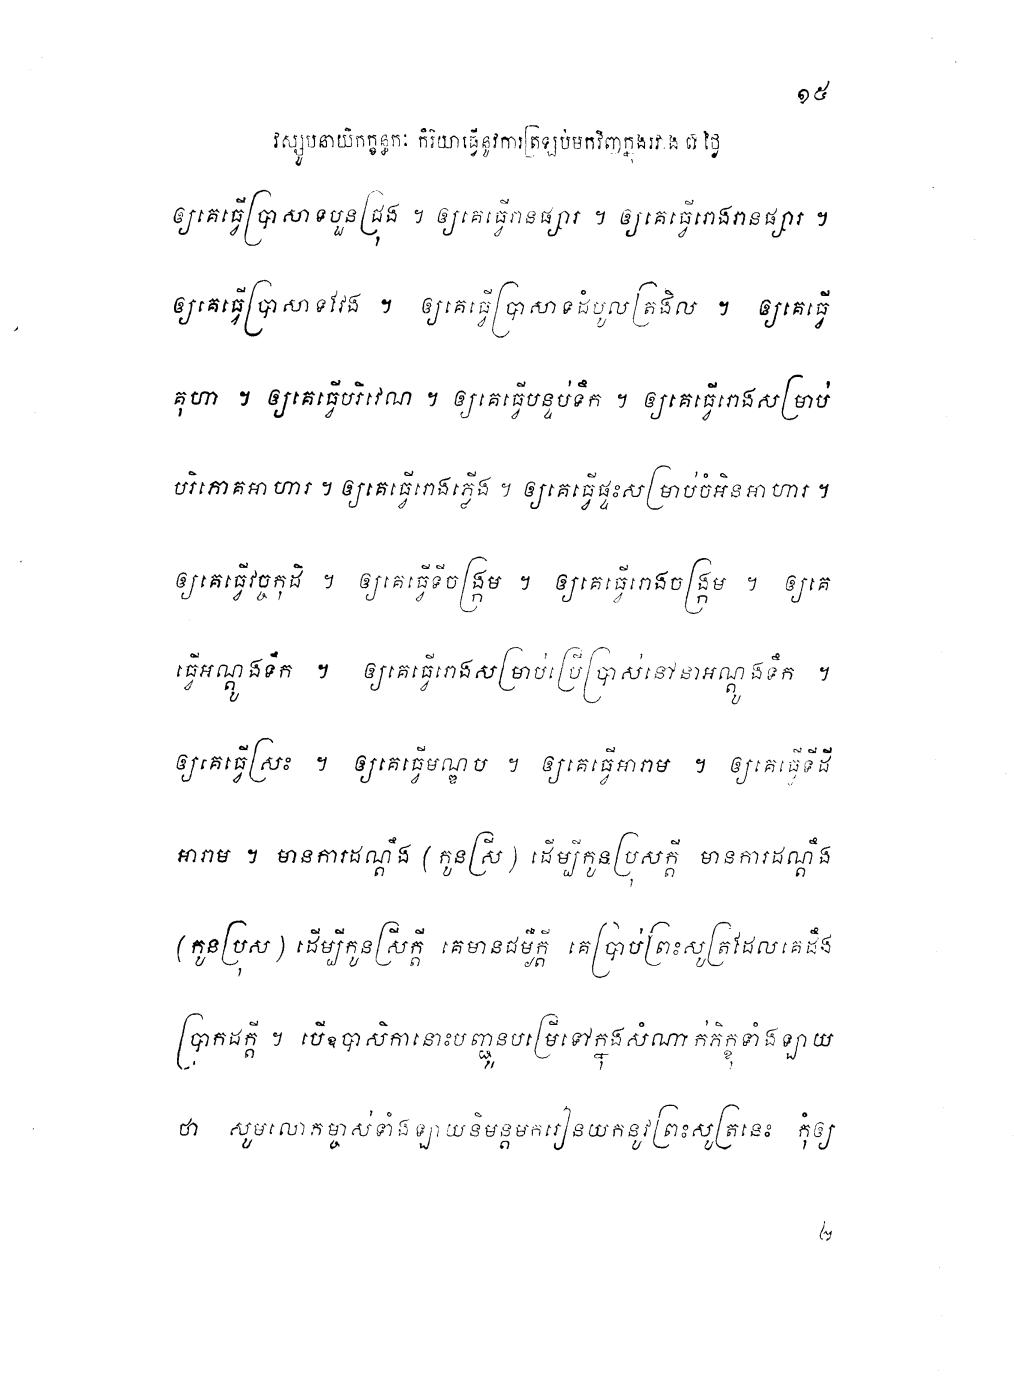 ១៥
វស្សូបនាយិកក្ខន្ធកៈ កិរិយាធ្វើនូវការត្រឡប់មកវិញក្នុងរវាង ៧ ថ្ងៃ
ឲ្យគេធ្វើប្រាសាទបួនជ្រុង ។ ឲ្យគេធ្វើរានផ្សារ ។ ឲ្យគេធ្វើរោងរានផ្សារ ។
ឲ្យគេធ្វើប្រាសាទវែង ។ ឲ្យគេធ្វើប្រាសាទដំបូលត្រងិល ។ ឲ្យគេធ្វើ
គុហា ។ ឲ្យគេធ្វើបរិវេណ ។ ឲ្យគេធ្វើបន្ទប់ទឹក ។ ឲ្យគេធ្វើរោងសម្រាប់
បរិភោគអាហារ ។ ឲ្យគេធ្វើរោងភ្លើង ។ ឲ្យគេធ្វើផ្ទះសម្រាប់ចំអិនអាហារ ។
ឲ្យគេធ្វើវច្ចកុដិ ។ ឲ្យគេធ្វើទីចង្ក្រម ។ ឲ្យគេធ្វើរោងចង្ក្រម ។ ឲ្យគេ
ធ្វើអណ្តូងទឹក ។ ឲ្យគេធ្វើរោងសម្រាប់ប្រើប្រាស់នៅនាអណ្តូងទឹក ។
ឲ្យគេធ្វើស្រះ ។ ឲ្យគេធ្វើមណ្ឌប ។ ឲ្យគេធ្វើអារាម ។ ឲ្យគេធ្វើទីដី
អារាម ។ មានការដណ្តឹង (កូនស្រី) ដើម្បីកូនប្រុសក្តី មានការដណ្តឹង
(កូនប្រុស) ដើម្បីកូនស្រីក្តី គេមានជម្ងឺក្តី គេប្រាប់ព្រះសូត្រដែលគេដឹង
ប្រាកដក្តី ។ បើឧបាសិកានោះបញ្ជូនបម្រើទៅក្នុងសំណាក់ភិក្ខុទាំងឡាយ
ថា សូមលោកម្ចាស់ទាំងឡាយនិមន្តមករៀនយកនូវព្រះសូត្រនេះ កុំឲ្យ